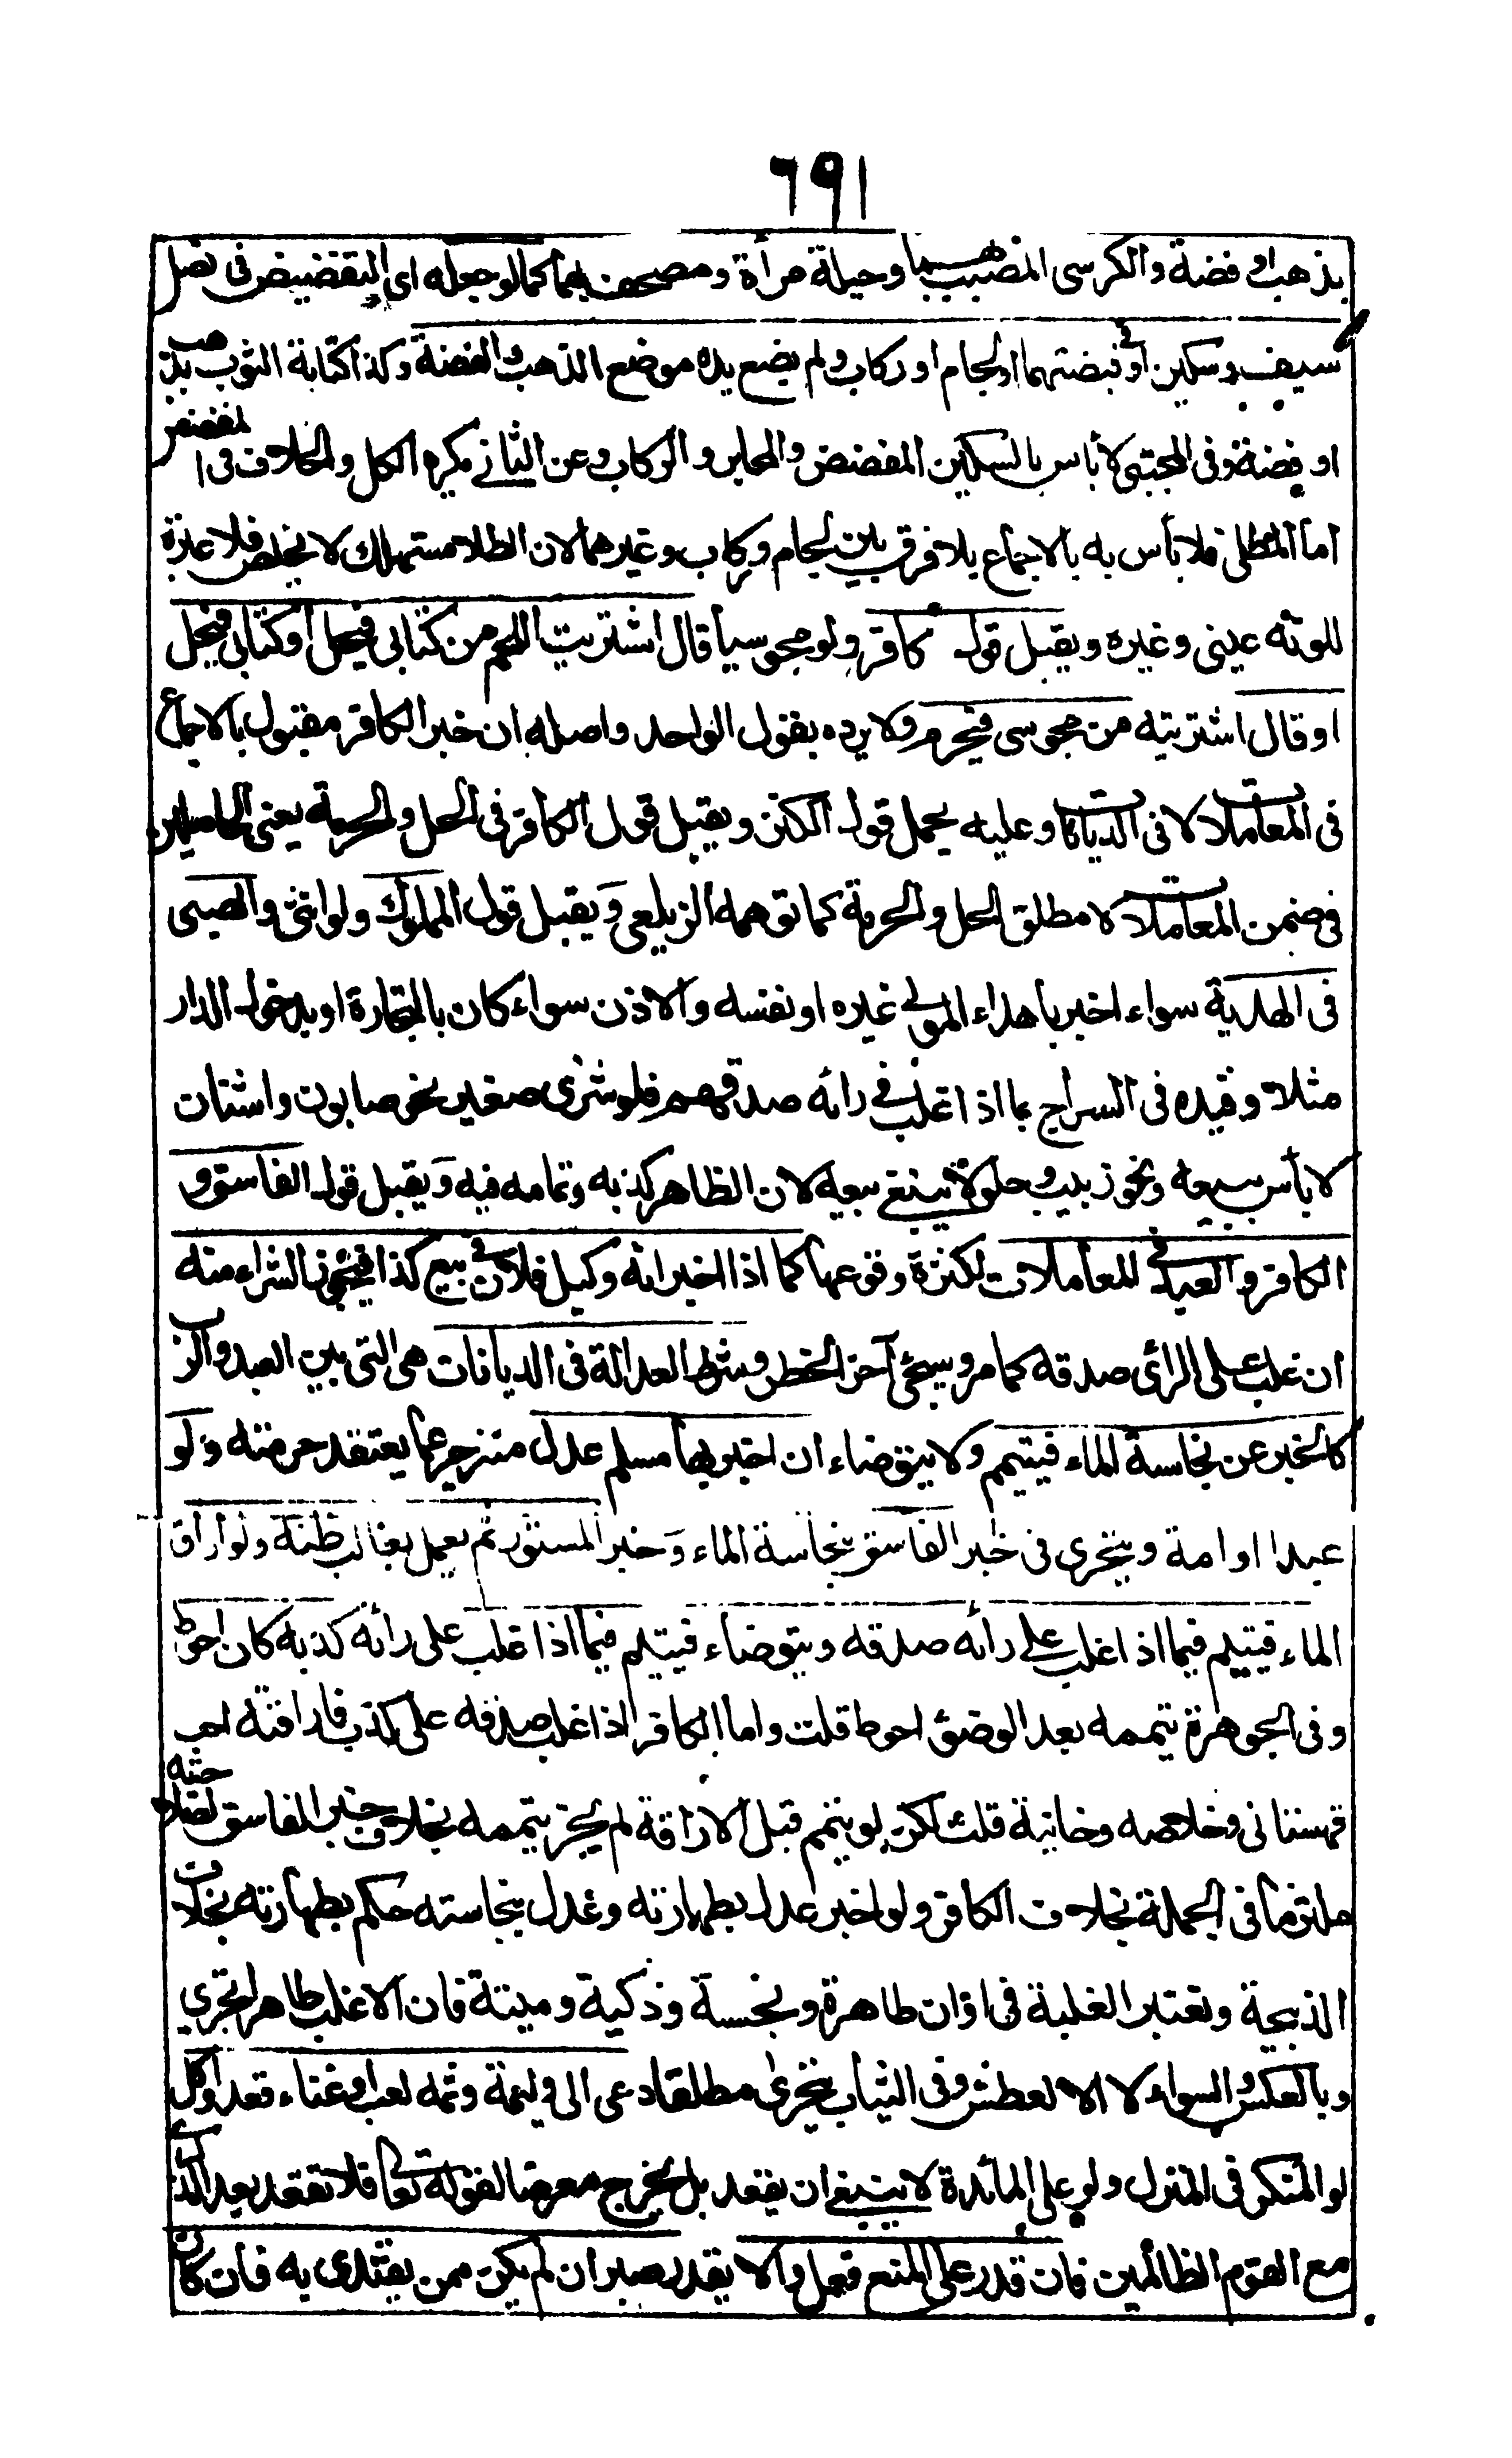 ٦٩١
بذهب او فضة والكرسى المضبب بهما وحيلة مرأة ومصحف بهما كما لو جعله اى التفضيض فى نصل
سيف وسكين او فى قبضتهما او لجام او ركاب ولم يضع يده موضع الذهب والفضة وكذا كتابة الثوب بذهب
او فضة وفى المجتبى لا بأس بالسكين المفضض والمحابر والركاب وعن الثانى يكره الكل والخلاف فى المفضض
اما المطلى فلا بأس به بالاجماع بلا فرق بين لجام وركاب وغيرهما لان الطلاء مستهلك لا يخلص فلا عبرة
للونه عينى وغيره ويقبل قول كافر ولو مجوسيا قال اشتريت اللحم من كتابى فيحل او كتابى فيحل
او قال اشتريته من مجوسى فيحرم ولا يرده بقول الواحد واصله ان خبر الكافر مقبول بالاجماع
فى المعاملات لا فى الديانات وعليه يحمل قول الكنز ويقبل قول الكافر فى الحل والحرمة يعنى الحاصلين
فى ضمن المعاملات لا مطلق الحل والحرمة كما توهمه الزيلعى ويقبل قول المملوك ولو انثى والصبى
فى الهدية سواء اخبر باهداء المولى غيره او نفسه والاذن سواء كان بالتجارة او بدخول الدار
مثلا وقيده فى السراج بما اذا غلب فى رأيه صدقهم فلو شرى صغير نحو صابون واشنان
لا بأس ببيعه ونحو زبيب وحلوى لا ينبغى بيعه لان الظاهر كذبه وتمامه فيه ويقبل قول الفاسق و
الكافر والعبد فى المعاملات لكثرة وقوعها كما اذا اخبر انه وكيل فلان فى بيع كذا فيجوز الشراء منه
ان غلب على الرأى صدقه كما مر وسيجئ آخر الحظر وشرط العدالة فى الديانات هى التى بين العبد والرب
كالخبر عن نجاسة الماء فيتيمم ولا يتوضاء ان اخبر بها مسلم عدل منزجر عما يعتقد حرمته ولو
عبدا او امة ويتحرى فى خبر الفاسق بنجاسة الماء وخبر المستور ثم يعمل بغالب ظنه ولو اراق
الماء فيتيمم فيما اذا غلب على رأيه صدقه ويتوضاء فيتيمم فيما اذا غلب على رأيه كذبه كان احوط
وفى الجوهرة يتيممه بعد الوضوء احوط قلت واما الكافر اذا غلب صدقه على كذبه فاراقته احب
قهستانى وخلاصه وخانية قلت لكن لو يتمم قبل الاراقة لم يجز يتيممه بخلاف خبر الفاسق لصلاحيته
ملتزما فى الجملة بخلاف الكافر ولو اخبر عدل بطهارته وعدل بنجاسته حكم بطهارته بخلاف
الذبيحة وتعتبر الغلبة فى اوان طاهرة ونجسة وذكية وميتة فان الاغلب طاهرا تحرى
وبالعكس والسواء لا الا لعطش وفى الثياب يتحرى مطلقا دعى الى وليمة وثمه لعب او غناء قعد واكل
لو المنكر فى المنزل ولو على المائدة لا ينبغى ان يقعد بل يخرج معرضا لقوله تعالى فلا تقعد بعد الذكرى
مع القوم الظالمين فان قدر على المنع فعل والا يقدر صبر ان لم يكن ممن يقتدى به فان كان